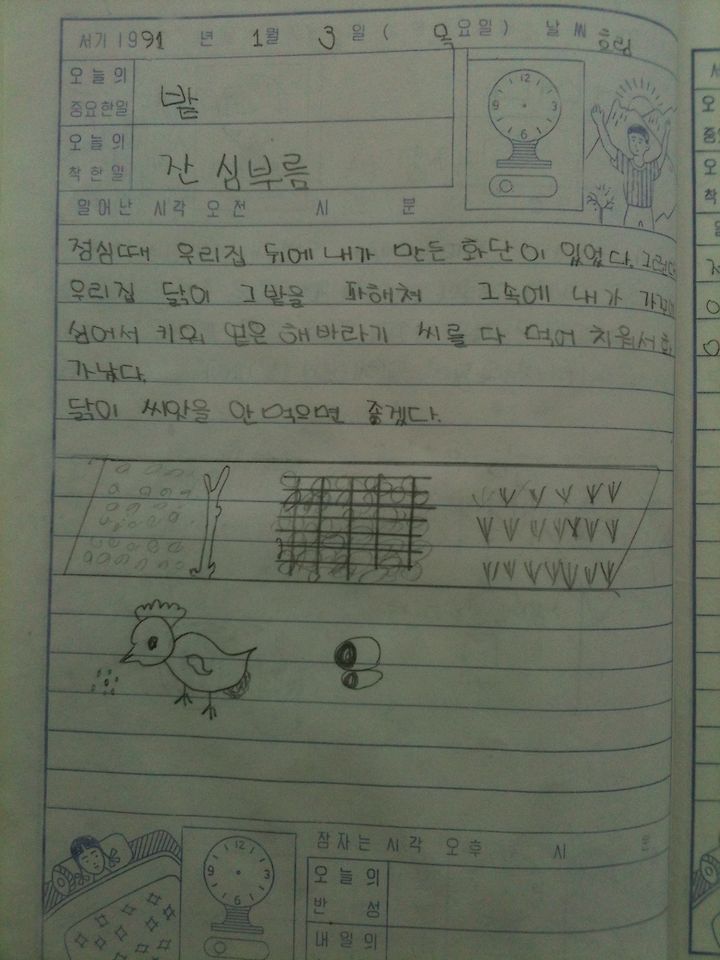 서기 1991 년 1월 3일 ( 목요일) 날씨 흐림
오늘의
중요한일 밭
오늘의
착한일 잔 심부름
일어난 시각 오전 시 분
점심때 우리집 뒤에 내가 만든 화단이 있었다. 그런데
우리집 닭이 그밭을 파헤쳐 그속에 내가
심어서 키워 해바라기 씨를 다 먹어 치워서 화
가났다.
닭이 씨앗을 안먹으면 좋겠다.
12
9 3
6
잠자는 시각 오후 시
오늘의
반성
내일의
12
9 3
6